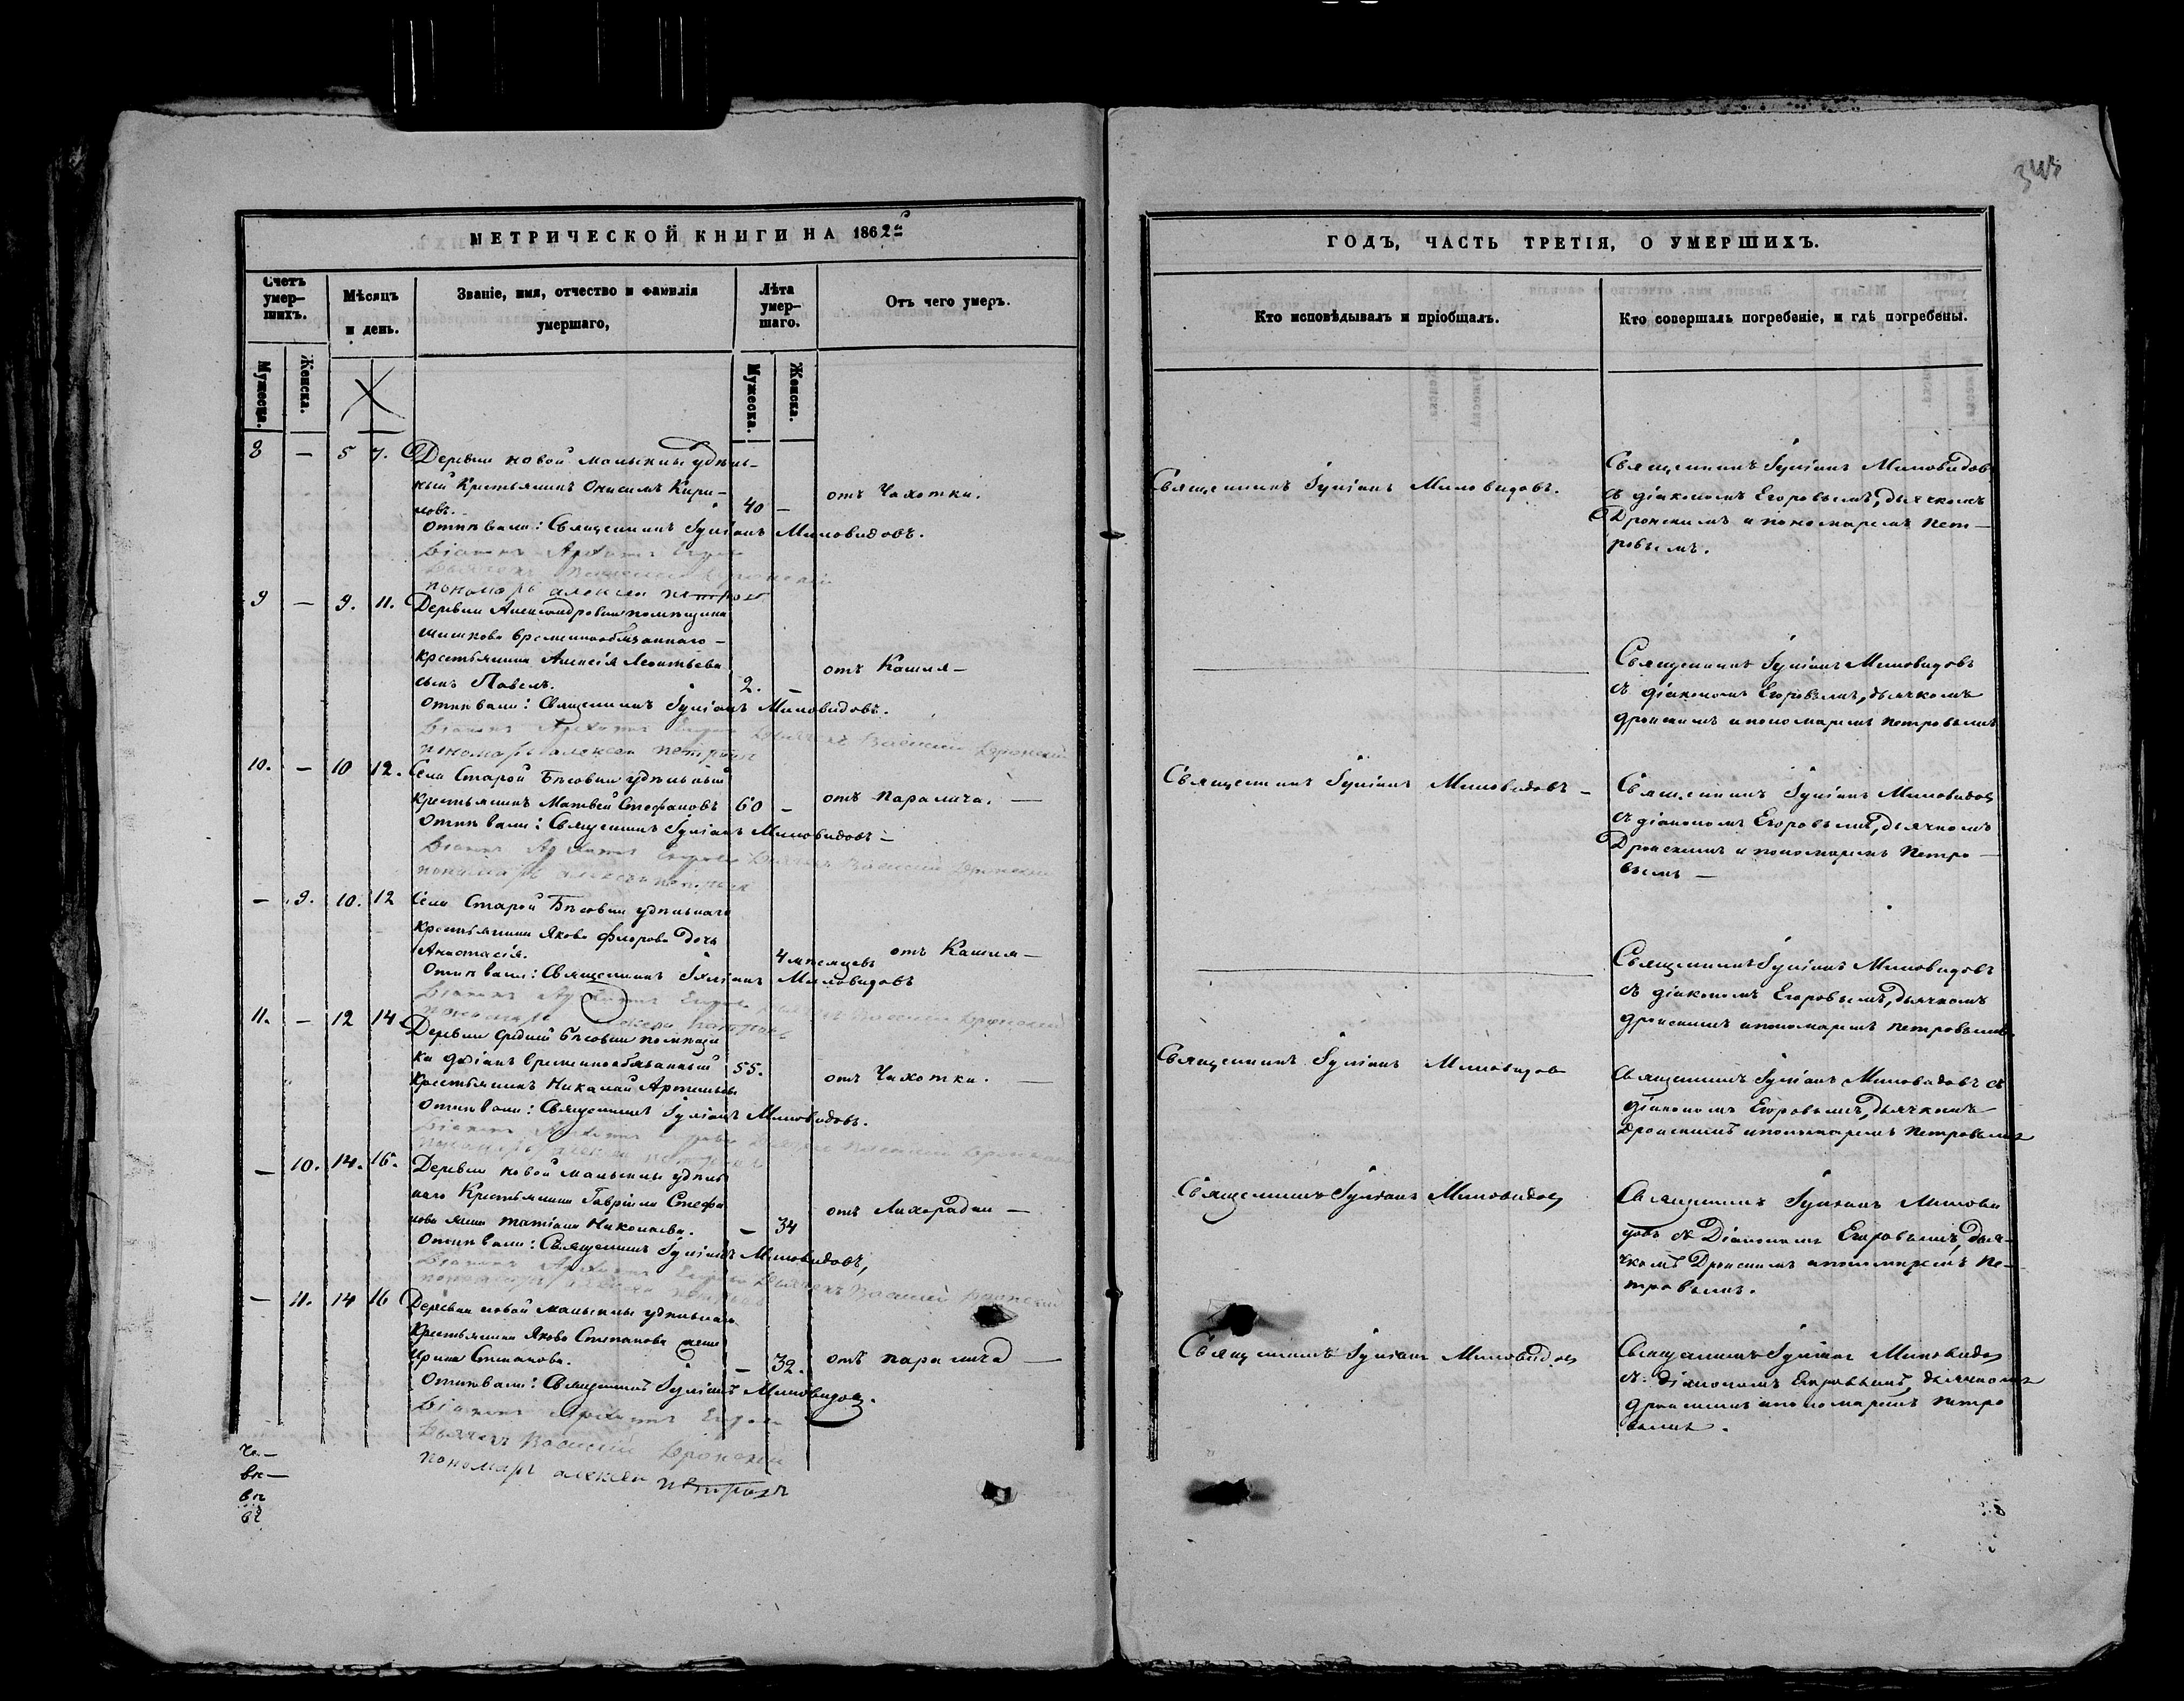 343
МЕТРИЧЕСКОЙ КНИГИ НА 1862й
Счетъ умер-шихъ.
Мѣсяцъ и день.
Званіе, имя, отчество и фамилія умершаго,
Лѣта умер-шаго.
Отъ чего умеръ.
Мужеска.
Женска.
Мужеска.
Женска.
8 — 5 7. Деревни новой малыклы удѣль-
ный Крестьянинъ Онисимъ Кири-
ловъ. 40 — отъ Чахотки.
Отпѣвали: Священникъ Іуліанъ Миловидовъ.
Діаконъ
Дьячекъ Василий Дронский
пономарь алексеи петровъ
9 — 9. 11. Деревни Александровки помѣщика
временнообязаннаго —
крестьянина Алексѣя Леонтьева
сынъ Павелъ. 2. — отъ Кашля —
Отпѣвали: Священникъ Іуліанъ Миловидовъ.
Діаконъ Дьячекъ Василий Дронский
пономарь алексеи петровъ
10. — 10 12. Села Старой Бѣсовки удѣльный
крестьянинъ Матвей Стефановъ 60 — отъ паралича. —
Отпѣвали: Священникъ Іуліанъ Миловидовъ —
Діаконъ Дьячекъ Василий Дронский
пономарь алексеи петровъ
— 9. 10. 12 Села Старой Бѣсовки удѣльнаго
крестьянина Якова Флорова дочь
Анастасія. 4 мѣсяцевъ отъ Кашля —
Отпѣвали: Священникъ Іуліанъ Миловидовъ
Діаконъ Дьячекъ Василий Дронский
пономарь алексеи петровъ
11. — 12 14 Деревни средней Бѣсовки помѣщи
ка временнообязанный 55.
Крестьянинъ Николай Артемьевъ отъ Чахотки. —
Отпѣвали: Священникъ Іуліанъ Миловидовъ.
Діаконъ Василий Дронский
пономарь алексеи петровъ
— 10. 14. 16. Деревни новой малыклы удѣль
наго Крестьянина Гавріила Стефа
нова жена Татіана Николаева. — 34 отъ Лихорадки —
Отпѣвали: Священникъ Іуліанъ Миловидовъ,
Діаконъ Дьячекъ Василий Дронский
пономарь алексеи петровъ
— 11. 14 16 Деревни новой малыклы удѣльнаго
Крестьянина Якова Степанова жена
Ирина Степанова. — 32. отъ паралича —
Отпѣвали: Священникъ Іуліанъ Миловидовъ.
Діаконъ
Дьячекъ Василий Дронский
пономарь алексеи петровъ
ГОДЪ, ЧАСТЬ ТРЕТІЯ, О УМЕРШИХЪ.
Кто исповѣдывалъ и пріобщалъ.
Кто совершалъ погребеніе, и гдѣ погребены.
Священникъ Іуліанъ Миловидовъ.
Священникъ Іуліанъ Миловидовъ
съ діакономъ Егоровымъ, дьячкомъ
Дронскимъ и пономаремъ Пет-
ровымъ.
Священникъ Іуліанъ Миловидовъ
съ діакономъ Егоровымъ, дьячкомъ
дронскимъ и пономаремъ петровымъ
Священникъ Іуліанъ Миловидовъ —
Священникъ Іуліанъ Миловидовъ
съ діакономъ Егоровымъ, дьячкомъ
Дронскимъ и пономаремъ Петро-
вымъ —
Священникъ Іуліанъ Миловидовъ
съ діакономъ Егоровымъ, дьячкомъ
дронскимъ и пономаремъ петровымъ.
Священникъ Іуліанъ Миловидовъ
Священникъ Іуліанъ Миловидовъ съ
діакономъ Егоровымъ, дьячкомъ
дронскимъ и пономаремъ Петровымъ
Священникъ Іуліанъ Миловидовъ
Священникъ Іуліанъ Милови
довъ съ Діакономъ Егоровымъ, дья-
чкомъ Дронскимъ и пономаремъ Пе-
тровымъ.
Священникъ Іуліанъ Миловидовъ
Священникъ Іуліанъ Миловидовъ
съ діакономъ Егоровымъ, дьячкомъ
дронскимъ и пономаремъ Петро
вымъ.